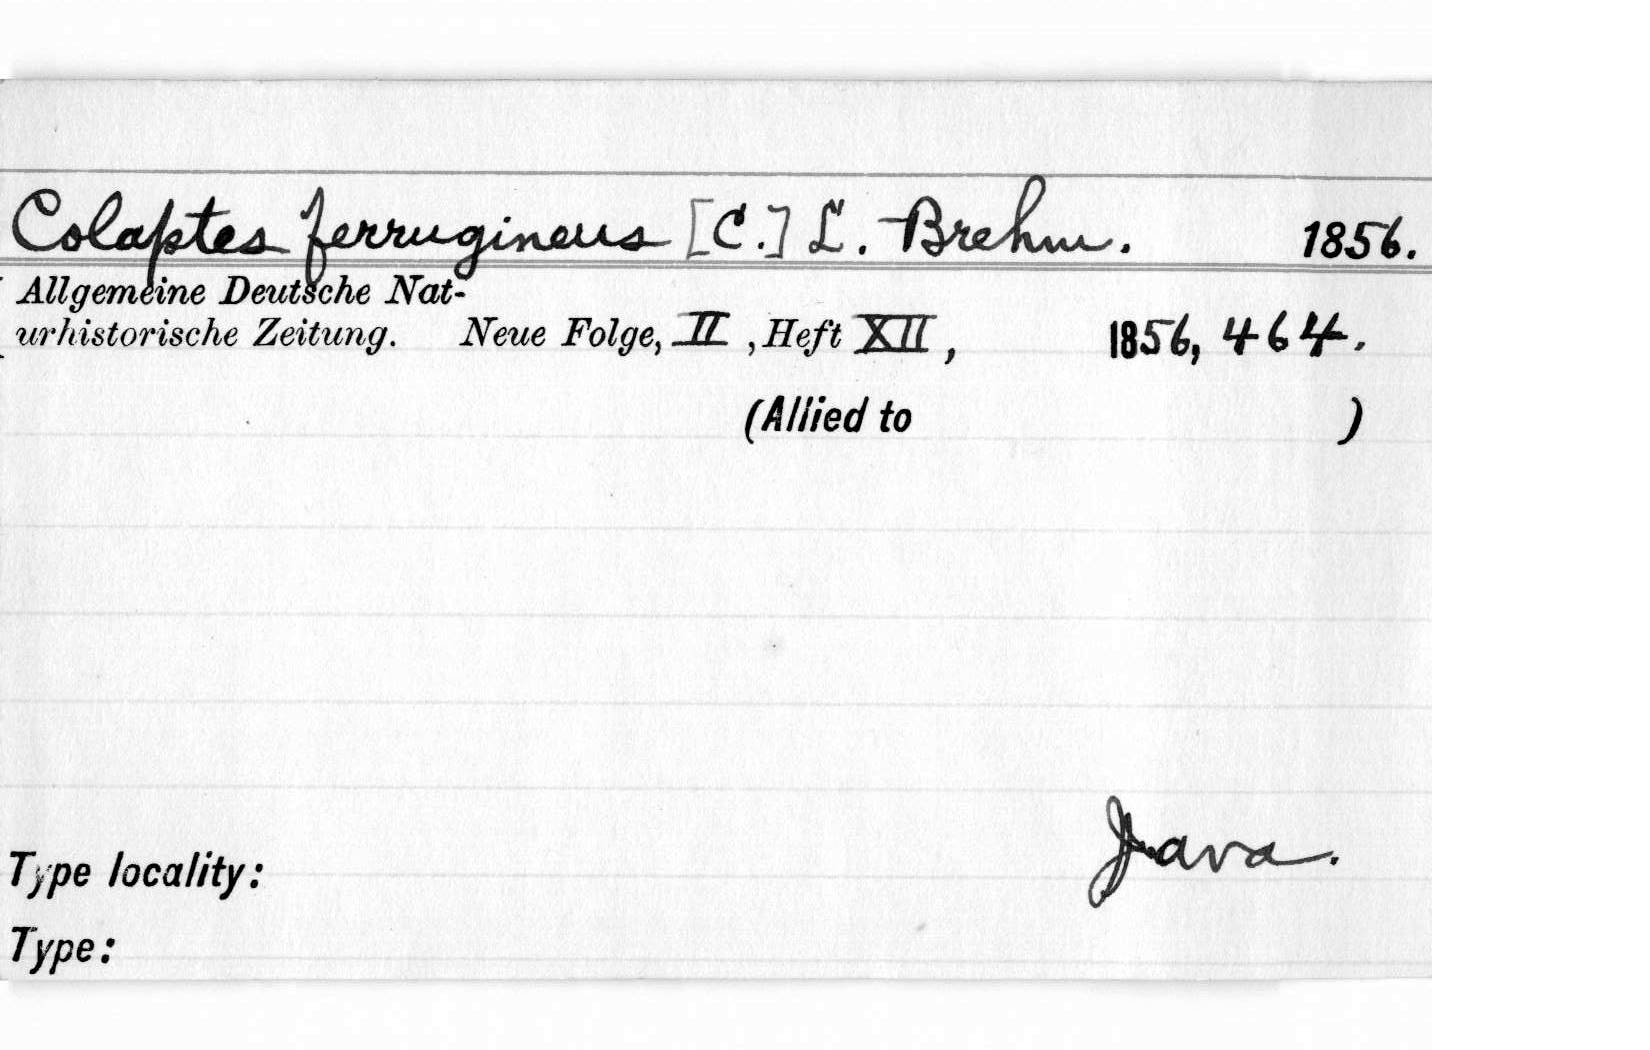 Colaptes ferrugineus [C.] L. Brehm. 1856.
Allgemeine Deutsche Nat-
urhistorische Zeitung. Neue Folge, II, Heft XII, 1856, 464.
(Allied to )
Java.
Type locality:
Type: